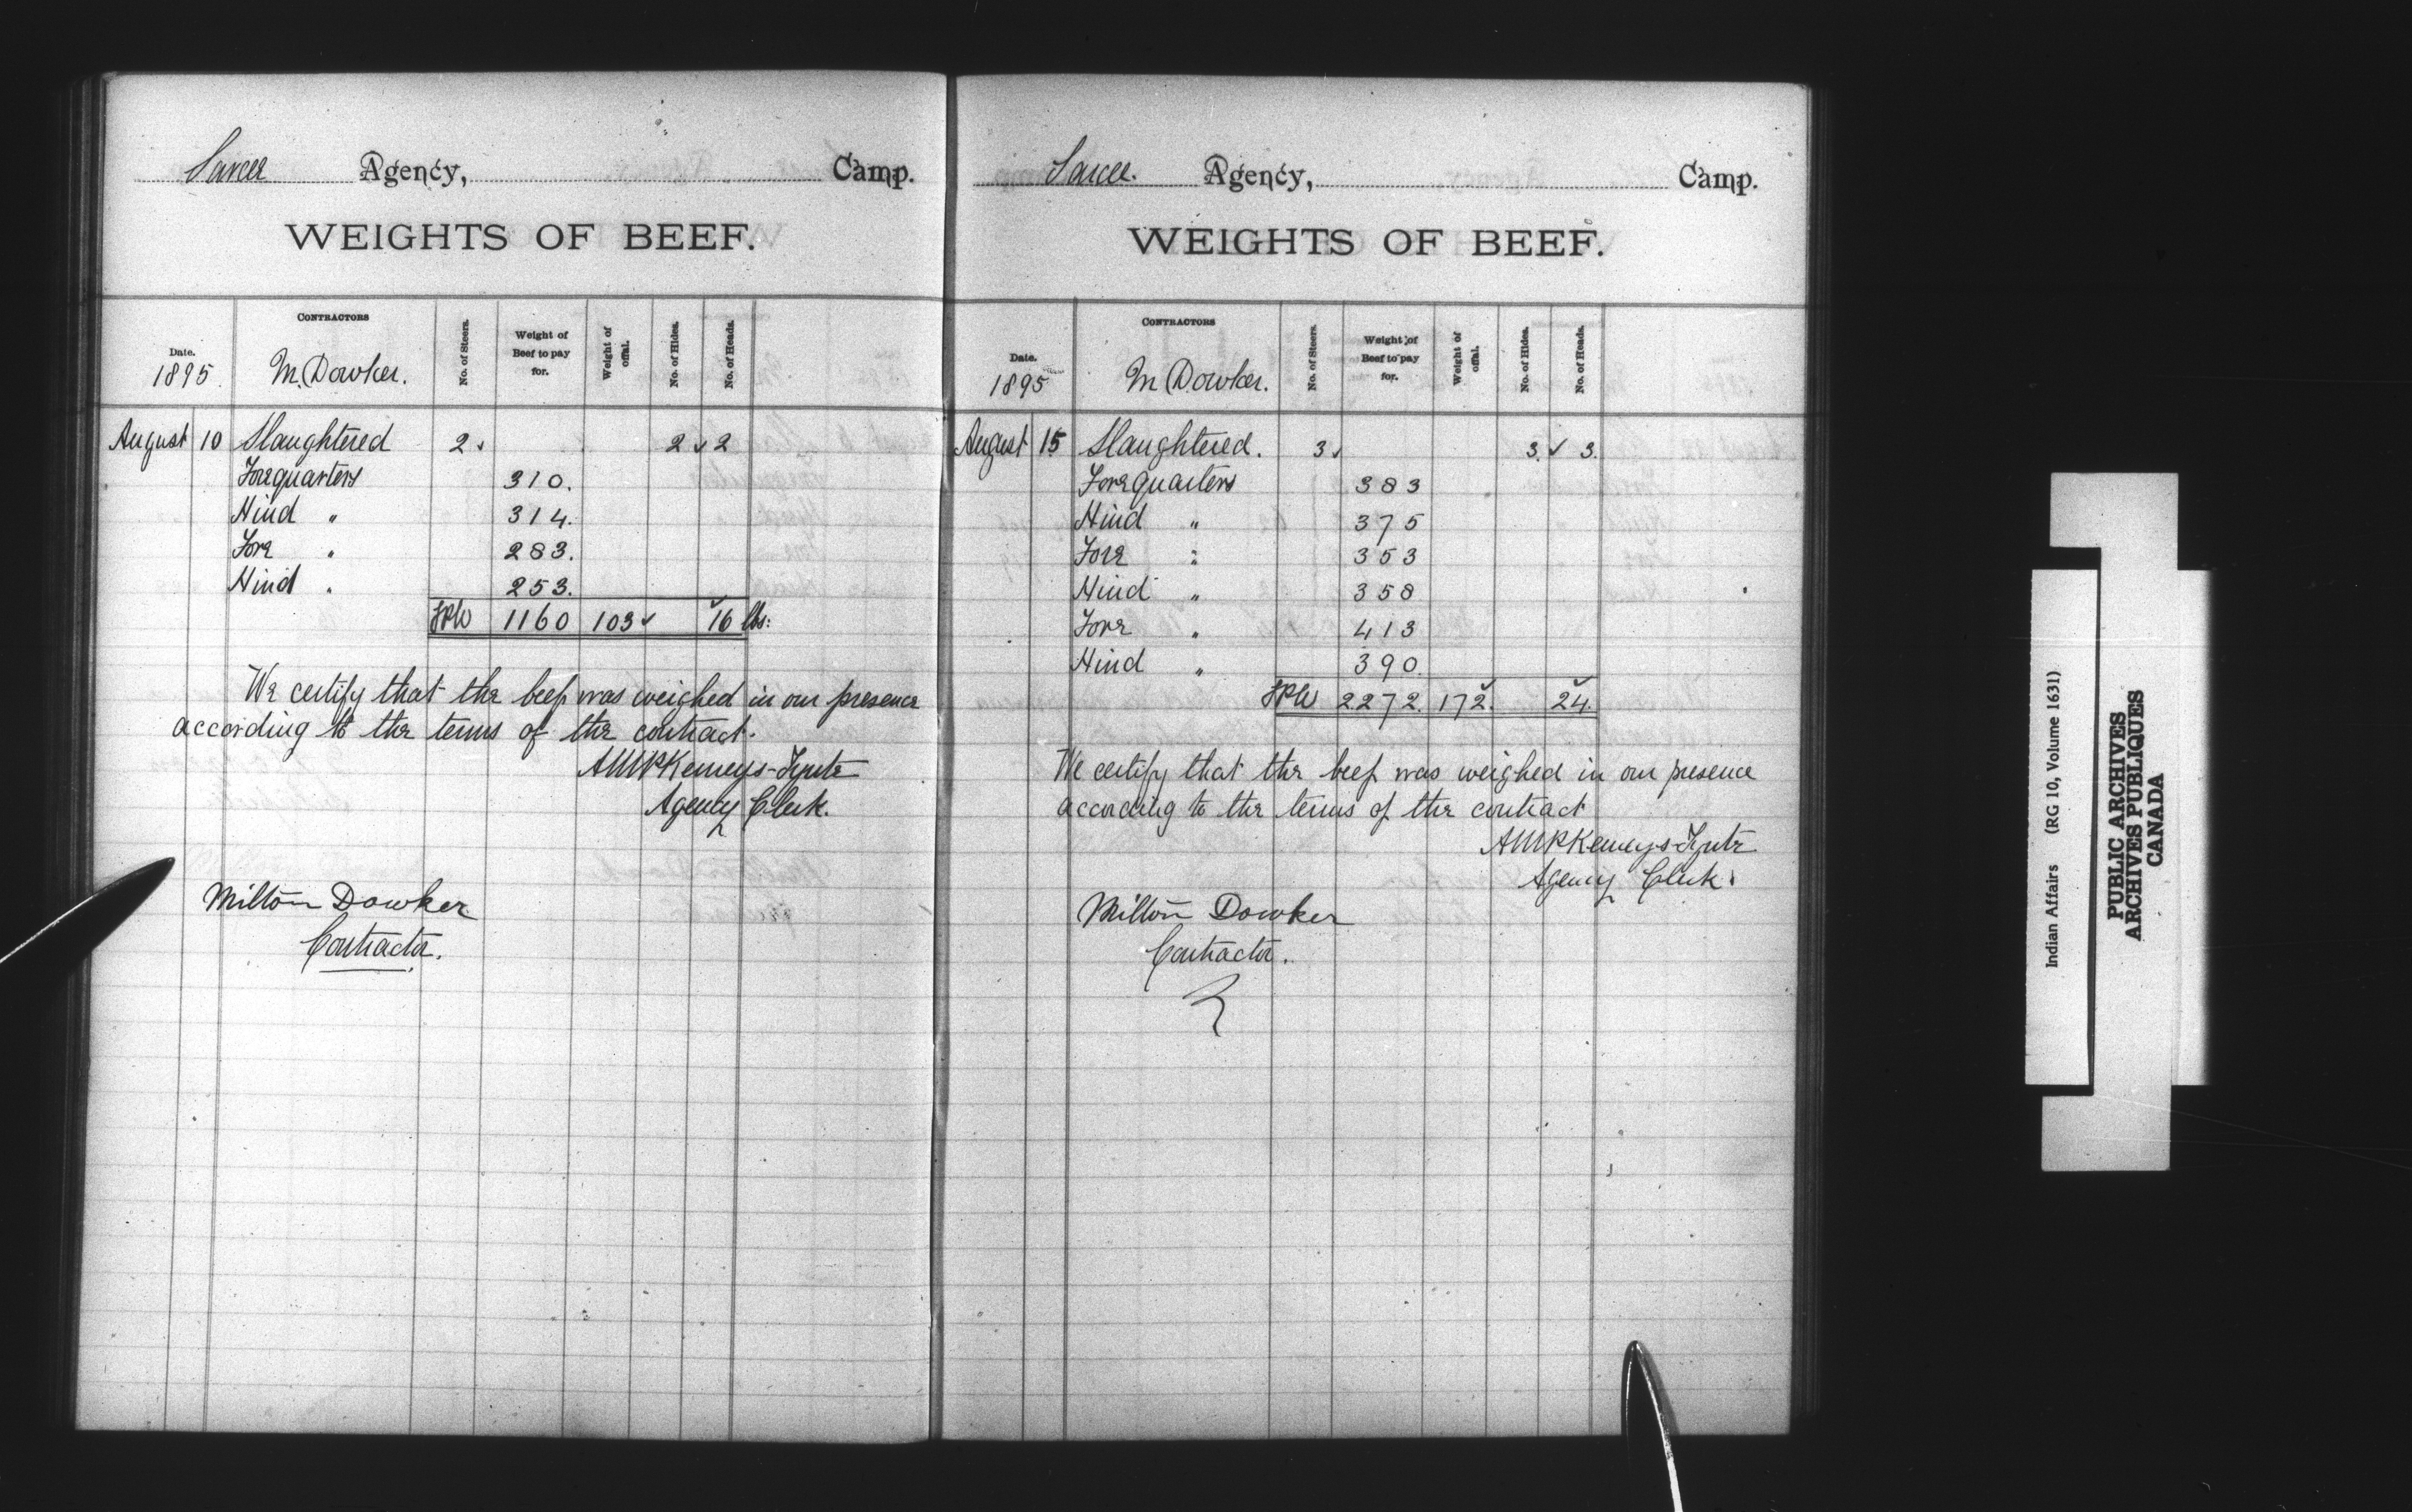 Sarcee Agency, Camp.
WEIGHTS OF BEEF.
Date. 1895. CONTRACTORS M. Dowker. No. of Steers. Weight of Beef to pay for. Weight of offal. No. of Hides. No. of Heads.
August 10 Slaughtered 2 ✓ 2 ✓ 2
Forequarters 310.
Hind " 314.
Fore " 283.
Hind " 253.
1160 103 ✓ ✓ 16 lbs:
We certify that the beef was weighed in our presence
according to the terms of the contract.
Kemeys-Tynte
Agency Clerk.
Milton Dowker
Contractor.
Sarcee. Agency, Camp.
WEIGHTS OF BEEF.
Date. 1895 CONTRACTORS M Dowker. No. of Steers. Weight of Beef to pay for. Weight of offal. No. of Hides. No. of Heads.
August 15 Slaughtered. 3 ✓ 3. ✓ 3.
Forequarters 383
Hind " 375
Fore " 353
Hind " 358
Fore " 413
Hind " 390.
2272. 172. ✓ ✓ 24.
We certify that the beef was weighed in our presence
according to the terms of the contract
Kemeys-Tynte
Agency Clerk.
Milton Dowker
Contractor.
Indian Affairs (RG 10, Volume 1631)
PUBLIC ARCHIVES
ARCHIVES PUBLIQUES
CANADA